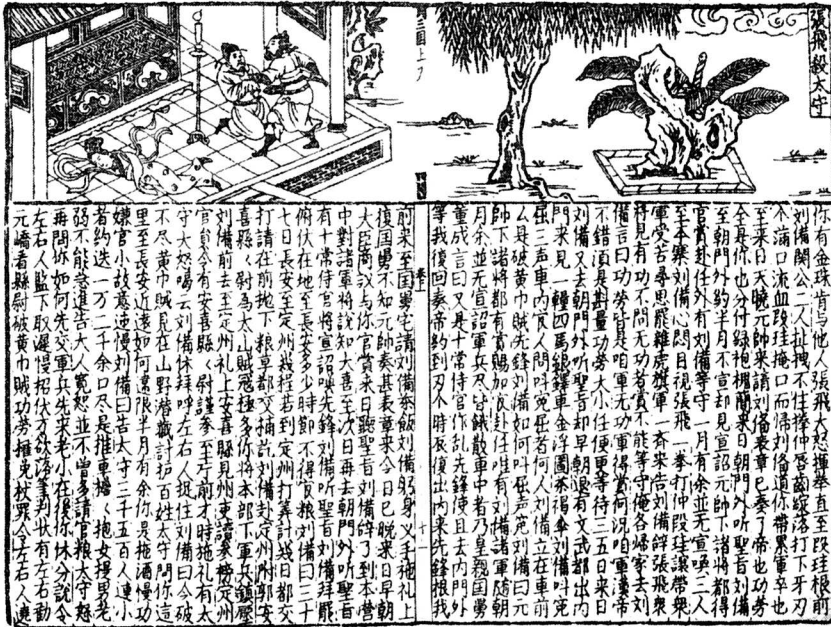 張飛殺太守
三国上
你有金珠肯与他人張飛大怒揮拳直至段珪根前
刘備關公二人扯拽不住捽仲唇齒綻落打下牙刃
个滿口流血段珪掩口而歸刘俻道你帶累軍卒也
至來日天曉元帥來請刘俻表章已奏了帝也功劳
全是你也分付綠袍槐蘭來日朝門外听聖旨刘俻
至朝門外約半月不宣却見宣詔元帥下諸將都得
官賞赴任外有刘俻等守一月有余並无宣喚三人
至本寨刘俻心悶目視張飛一拳打仲段珪讓帶衆
軍受苦尋思罷雜虎旗軍一斉來告刘俻辞張飛衆
将見有功不問无功者賞不能等守俺各歸家去刘
備言曰功劳皆是咱軍无功軍得賞何況咱軍漢帝
不錯須是斟量功劳大小任便更等待三五日來日
刘備又去朝門外听聖旨却早朝退有文武都出内
門來見一轓四馬銀鐸車金浮圖茶褐傘刘俻叫冤
屈三声車内官人問叫冤屈者何人刘俻立在車前
么是破黄巾賊先鋒刘俻如何叫屈声冤刘俻曰元
帥下諸將都有賞賜加官赴任唯有刘俻諸軍随朝
月余並无宣詔軍兵尽皆餓散車中者乃皇親国舅
董成言曰又是十常侍官作乱先鋒便且去内門外
等我復回奏帝約到刃个时辰復出内來先鋒根我
卷上
十一
前來至国舅宅請刘俻茶飯刘俻躬身叉手施礼上
復国舅不知元帥奏其表章來今日已晚來日早朝
大臣商议与你官賞來日聽聖旨刘俻辞了到本营
中對诸軍将說知大喜至次日再去朝門外听聖旨
有十常侍官将宣詔喚先鋒刘俻听聖旨刘俻拜罷
俯伏在地至長安多少時節不得官粮刘俻曰三十
七日長安至定州幾程若到定州打筭計幾日都交
打請在前地下粮草都交補訖刘俻赴定州附郭安
喜縣〻尉為太山賊寇極多你将本部下軍兵鎮壓
刘備前去至定州礼上安喜縣見州吏請參榜定州
官員今有安喜縣〻尉謹參至厅前才時施礼有太
守大怒喝云刘備休拜呼左右人捉住刘備曰今破
不尽黄巾賊見在山野潛藏討折百姓太守問你這
里至長安近遠如何違限半月有余你是拖酒慢功
嫌官小故意違慢刘備曰告太守三千五百人連小
者約迭一万二千余口尽是推車檐〻抱女提男老
弱不能急進告大人寬恕並不曾多請官粮太守怒
再問你如何先交軍兵先來老小在後你休分説令
左右人監下取遲慢招伏方欲落筆判狀有左右勸
元嶠看縣尉破黄巾賊功劳摧免杖罪令左右人遶